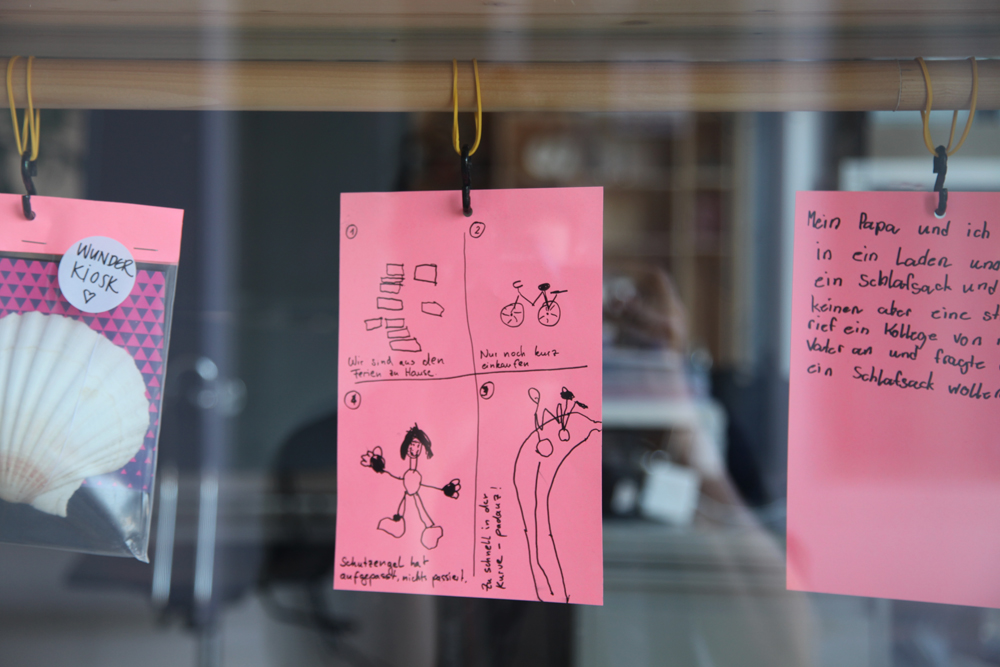 WUNDER
KIOSK
①
Wir sind aus den
Ferien zu Hause
②
Nur noch kurz
einkaufen
③
Zu schnell in der
Kurve - padauz!
④
Schutzengel hat
aufgepasst, nichts passiert.
Mein Papa und ich
in ein Laden und
ein Schlafsack und
keinen aber eine
rief ein Kollege von
Vater an und fragte
ein Schlafsack